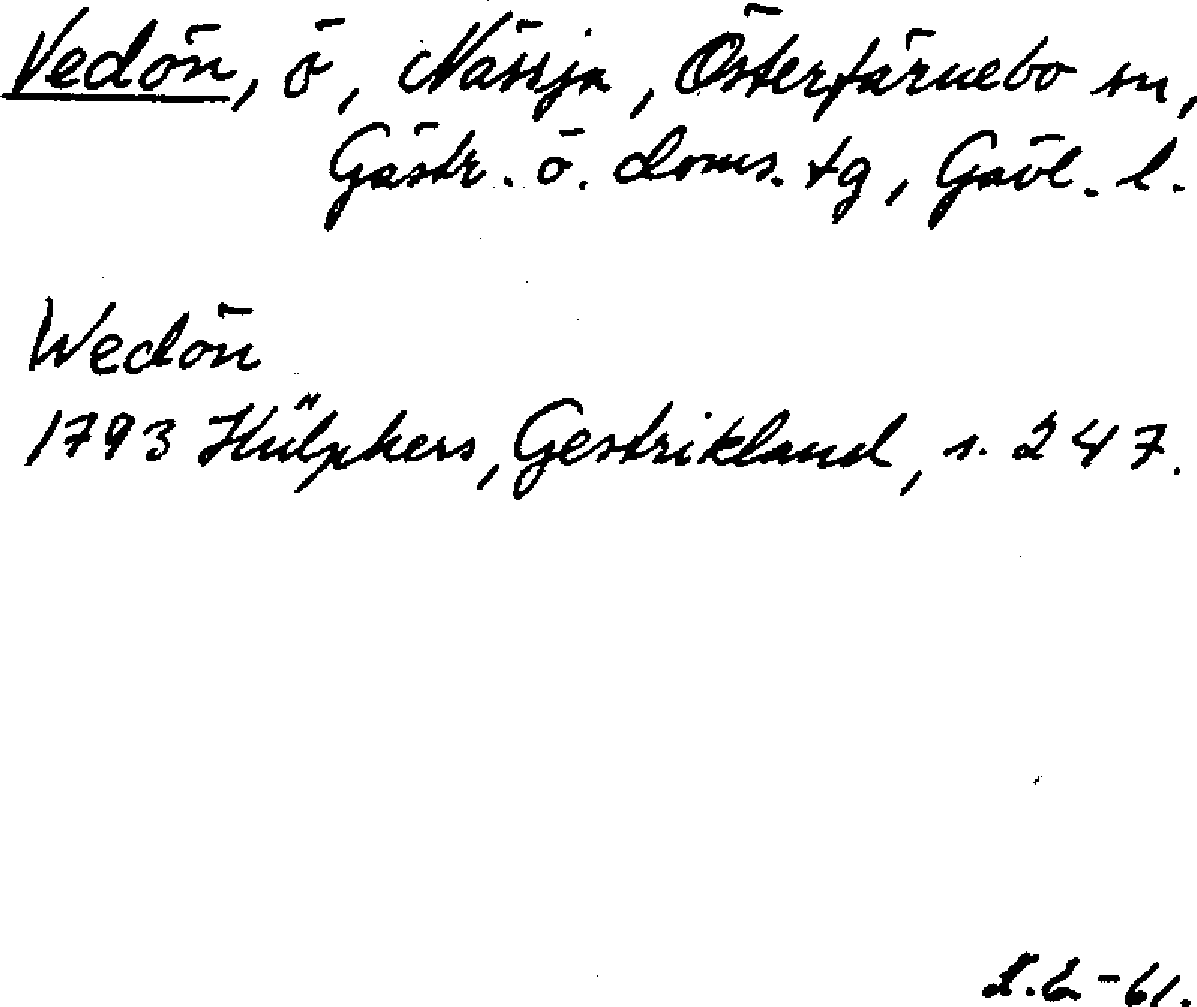 Vedön, ö, Nässja, Österfärnebo sn,
Gästr. ö. doms. tg, Gävl. l.
Wedön
1793 Hülphers, Gestrikland, s. 247.
-61.